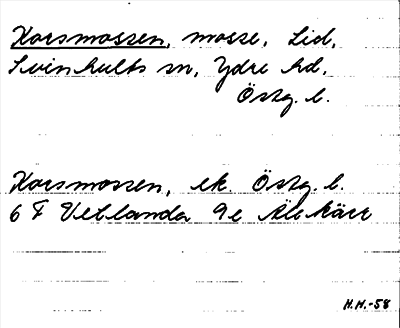 Korsmossen, mosse, Lid,
Svinhults sn, Ydre hd,
Östg. l.
Korsmossen, ek. Östg. l.
6 F Vetlanda 9e Älekärr
H.H.-58